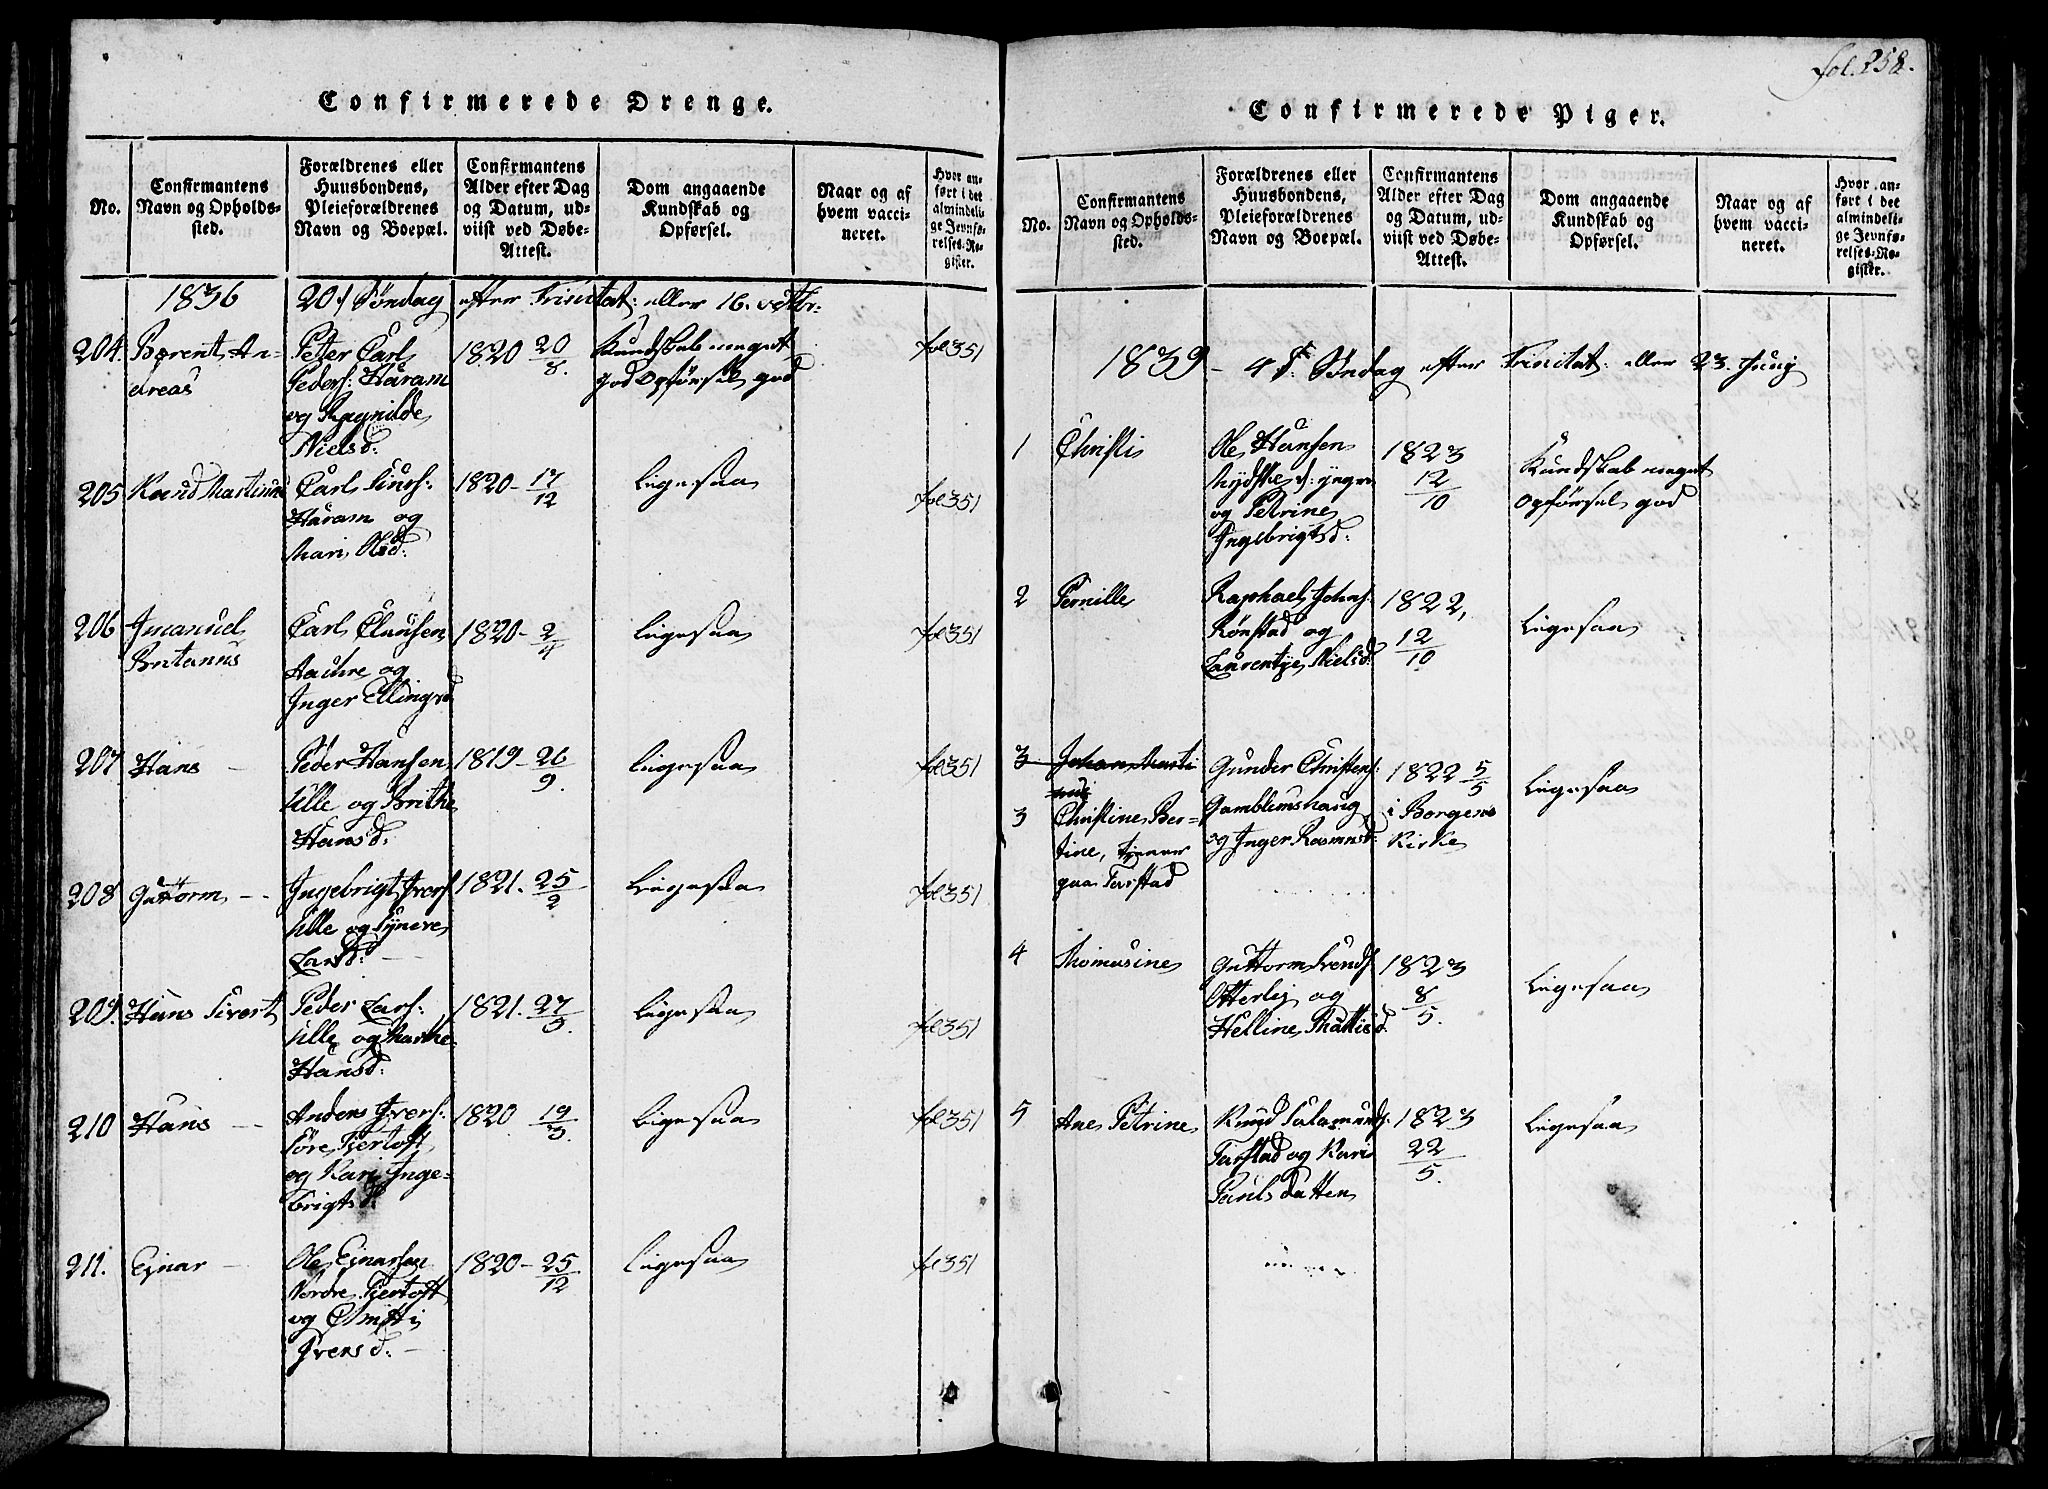 fol. 258.
Confirmerede Drenge.
No.
Confirmantens
Navn og Opholds-
sted.
Forældrenes eller
Huusbondens,
Pleieforældrenes
Navn og Boepæl.
Confirmantens
Alder efter Dag
og Datum, ud-
viist ved Døbe-
Attest.
Dom angaaende
Kundskab og
Opførsel.
Naar og af
hvem vacci-
neret.
Hvor an-
ført i det
almindeli-
ge Jevnfø-
relses-Re-
gister.
1836 20d Søndag efter Trinitat: eller 16. octbr:
204. Berent An-
dreas
Peter Carl
Peders: Haram
og Ragnilde
Nielsd:
1820 20/8.
Kundskab meget
god Opførsel god
fol 351
205 Knud Martinus
Carl Sims:
Haram og
Mari Olsd:
1820 - 17/12
Ligesaa
fol 351
206 Imanuel
Britanus
Carl Clausen
Hachre og
Inger Ellingsd
1820 - 2/4
Ligesaa
fol 351
207 Hans -
Peder Hansen
Ulle og Brithe
Hansd:
1819 - 26/9.
Ligesaa
fol 351
208 Guttorm - -
Ingebrigt Ivers
Ulle og Synneve
Larsd: -
1821. 25/2
Ligesaa
fol 351
209. Hans Sivert
Peder Lars:
Ulle og Marthe
Hansd:
1821. 27/3.
Ligesaa
fol 351
210 Hans - -
Anders Ivers:
Søre Fiertoft
og Kari Inge-
brigts
1820 19/3.
Ligesaa
fol 351
211. Ejnar -
Ole Ejnarsen
Nordre Fiertoft
og Chritti
Iversd. -
1820 - 25/12
Ligesaa
fol 351
Confirmerede Piger.
No.
Confirmantens
Navn og Opholds-
sted.
Forældrenes eller
Huusbondens,
Pleieforældrenes
Navn og Boepæl.
Confirmantens
Alder efter Dag
og Datum, ud-
viist ved Døbe-
Attest.
Dom angaaende
Kundskab og
Opførsel.
Naar og af
hvem vacci-
neret.
Hvor an-
ført i det
almindeli-
ge Jevnfø-
relses-Re-
gister.
1839 - 4d: Søndag efter Trinitat: eller 23. Junij
1 Christi
Ole Hansen
Mydske d: yngre
og Petrine
Ingebrigtsd:
1823
12/10
Kundskab meget
Opførsel god
2 Pernille
Raphael Johns:
Rønstad og
Laurentje Nielsd:
1822,
12/10
Ligesaa
3 Johan Marti
nus
3 Christine Ber-
tine, tiener
paa Farstad
Gunder Christens:
Gamblemshaug
og Inger Rasmusd:
1822 5/5
i Borgens
Kirke
Ligesaa
4 Thomasine
Guttorm Svends
Otterlej og
Helline Mattisd.
1823
8/5.
Ligesaa
5 Ane Petrine
Knud Salamunds:
Farstad og Kari
Paulsdatten
1823
22/5.
Ligesaa